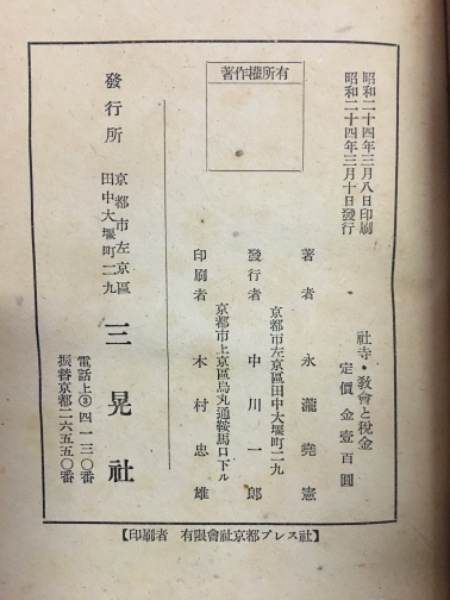 昭和二十四年三月八日印刷
昭和二十四年三月十日發行
社寺・敎會と稅金
定價 金壹百圓
有所權作著
著者 永瀧堯憲
京都市左京區田中大堰町二九
發行者 中川一郎
京都市上京區烏丸通鞍馬口下ル
印刷者 木村忠雄
發行所
京都市左京區
田中大堰町二九
三晃社
電話上③四一三〇番
振替京都二六五五〇番
【印刷者 有限會社京都プレス社】